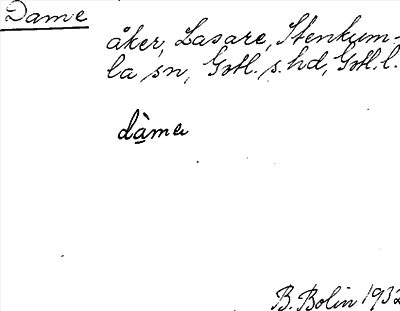 Dame
åker, Lasare, Stenkum-
la sn, Gotl. s. hd, Gotl. l.
dàma
B. Bolin 1932